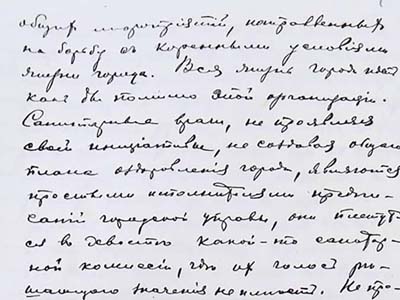 общих мероприятій, направленных
на борьбу с коренными условіями
жизни города. Вся жизнь города идет
как бы помимо этой организаціи.
Санитарные врачи, не проявляя
своей иниціативы, не создавая общаго
плана оздоровленія города, являются
простыми исполнителями предпи-
саній городской управы, они плетут-
ся в хвосте какой-то санитар-
ной комиссіи, где их голос рѣ-
шающаго значенія не имѣет. Не про-